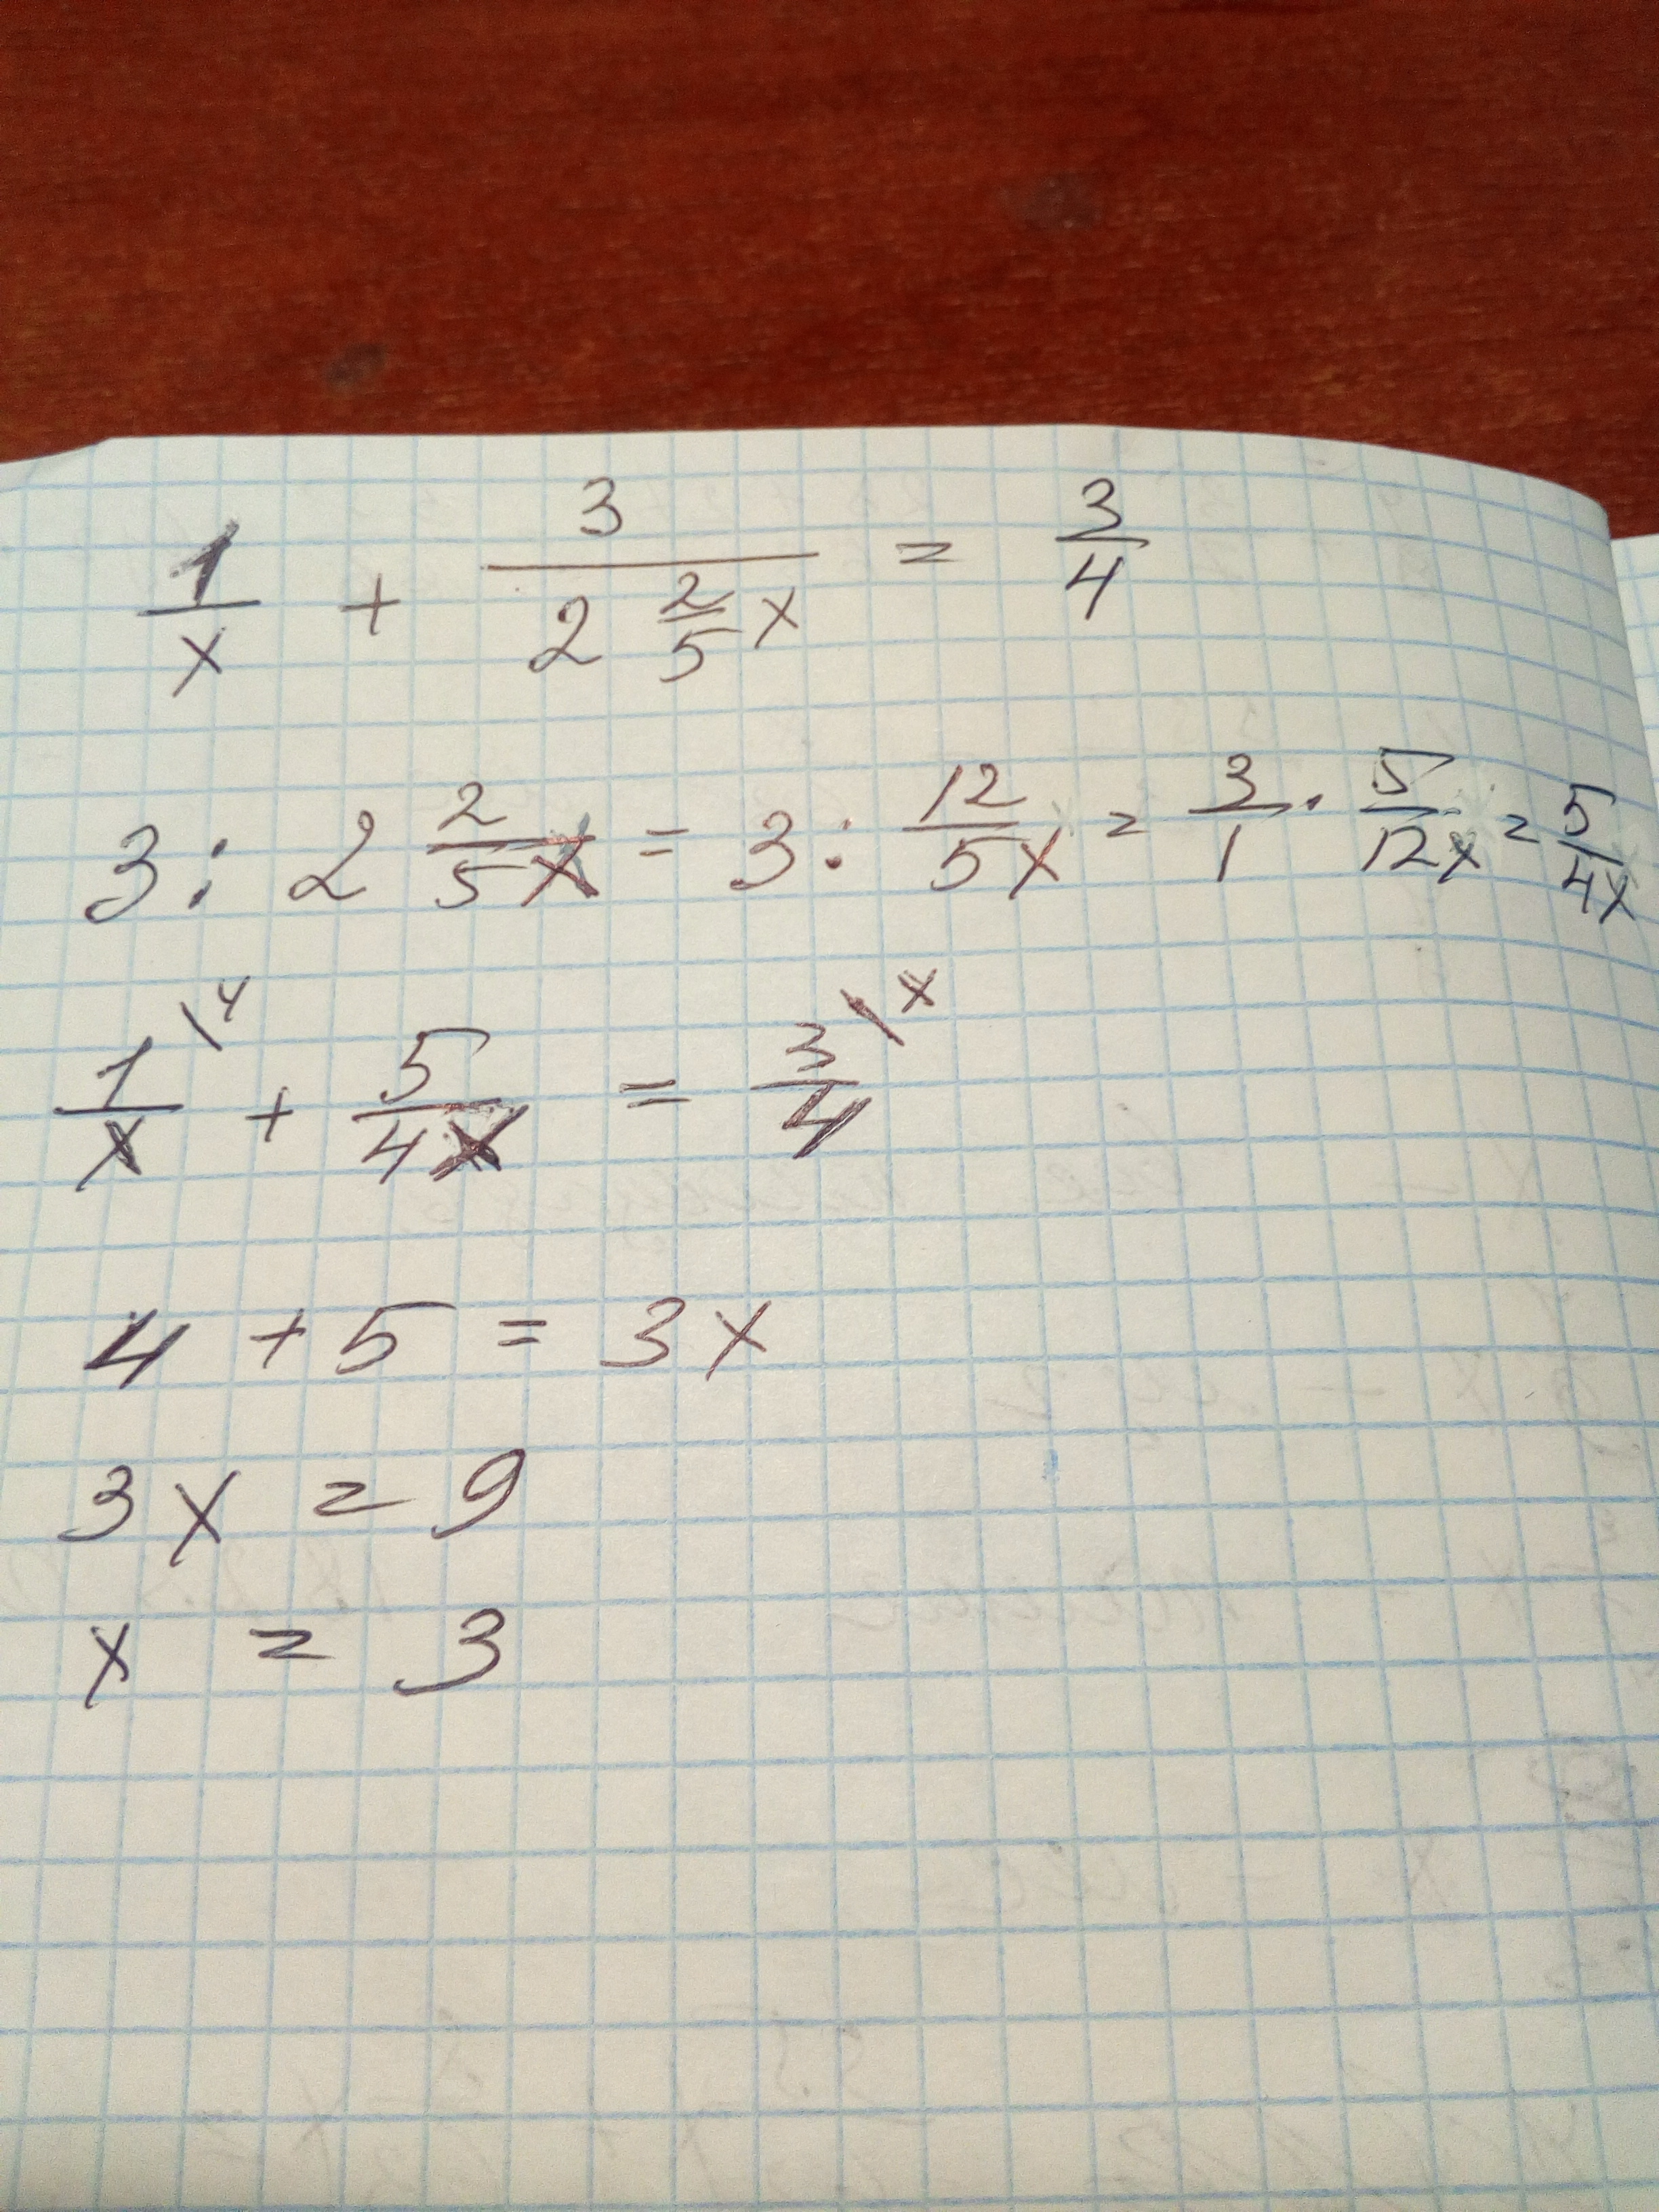 1/x + 3/(2 2/5 x) = 3/4
3 : 2 2/5x = 3 : 12/5x = 3/1 · 5/12x = 5/4x
1/x \4 + 5/4x = 3/4 \x
4 + 5 = 3x
3x = 9
x = 3